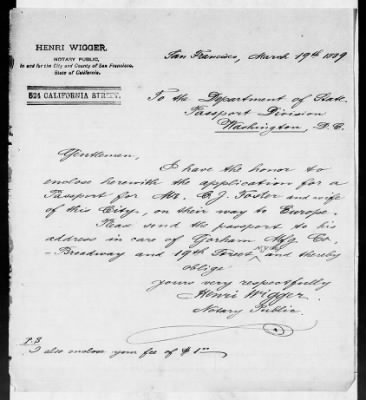 HENRI WIGGER.
NOTARY PUBLIC,
In and for the City and County of San Francisco,
State of California.
524 CALIFORNIA STREET.
San Francisco, March 19th 1889
To the Department of State
Passport Division
Washington, D.C.
Gentlemen,
I have the honor to
enclose herewith the application for a
Passport for Mr. C. J. Foster and wife
of this City, on their way to Europe.
Please send the passport to his
address in care of Gorham Mfg. Co.
- Broadway and 19th Street N.Y. and thereby
oblige
yours very respectfully
Henri Wigger.
Notary Public
P.S
I also enclose your fee of $ 1.00